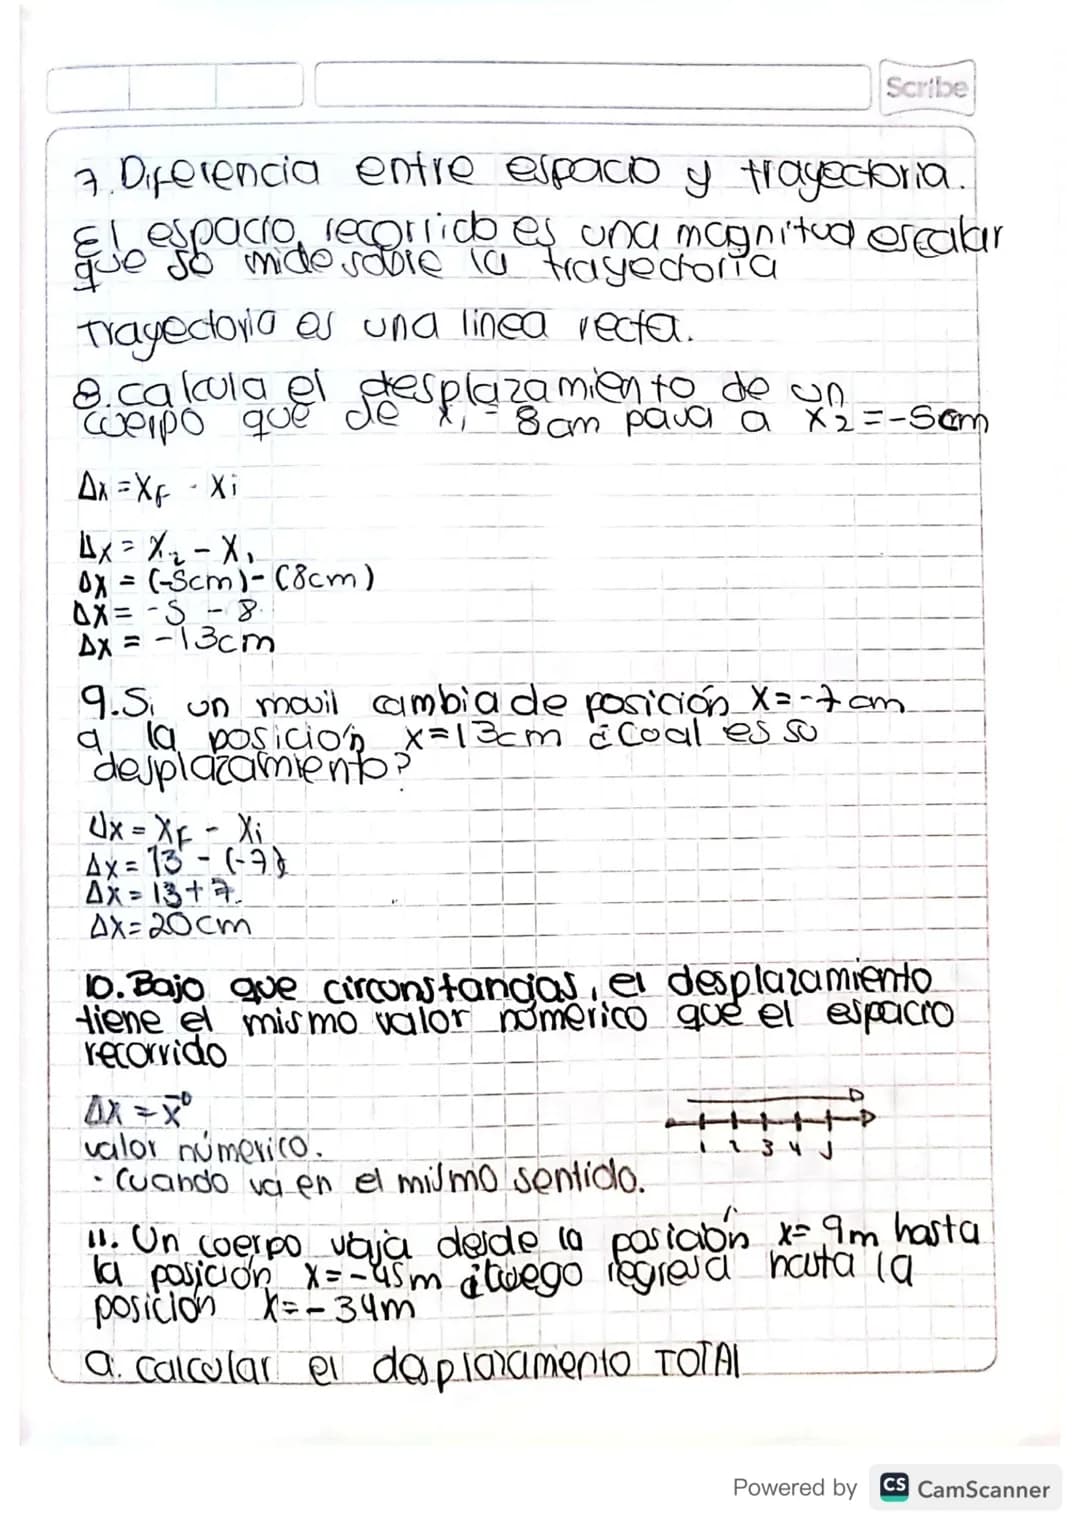 Scribe
7. Diferencia entre espacio y trayectoria.
El espacio recorrido es una magnitud escalar
que se mide sobre la trayectoria
Trayectoria es una linea recta.
8. calcula el desplazamiento de un
cuerpo que de x₁ = 8cm pava a x₂ = -5cm
Δx = XF - Xi
Δx = X₂ - X₁
Δx = (-5cm) - (8cm)
Δx = -5 - 8
Δx = -13cm
9. Si un movil cambia de posición X = -7cm
a la posición x = 13cm ¿Cual es su
desplazamiento?
Δx = XF - Xi
Δx = 13 - (-7)
Δx = 13 + 7
Δx = 20cm
10. Bajo que circunstancias, el desplazamiento
tiene el mismo valor númerico que el espacio
recorrido
Δx =
valor númerico.
1 2 3 4 5
· Cuando va en el mismo sentido.
11. Un cuerpo vaja desde la posición x = 9m hasta
la posición x = -45m luego regresa hasta la
posición x = -34m
a. calcular el desplazamento TOTAL
Powered by CS CamScanner